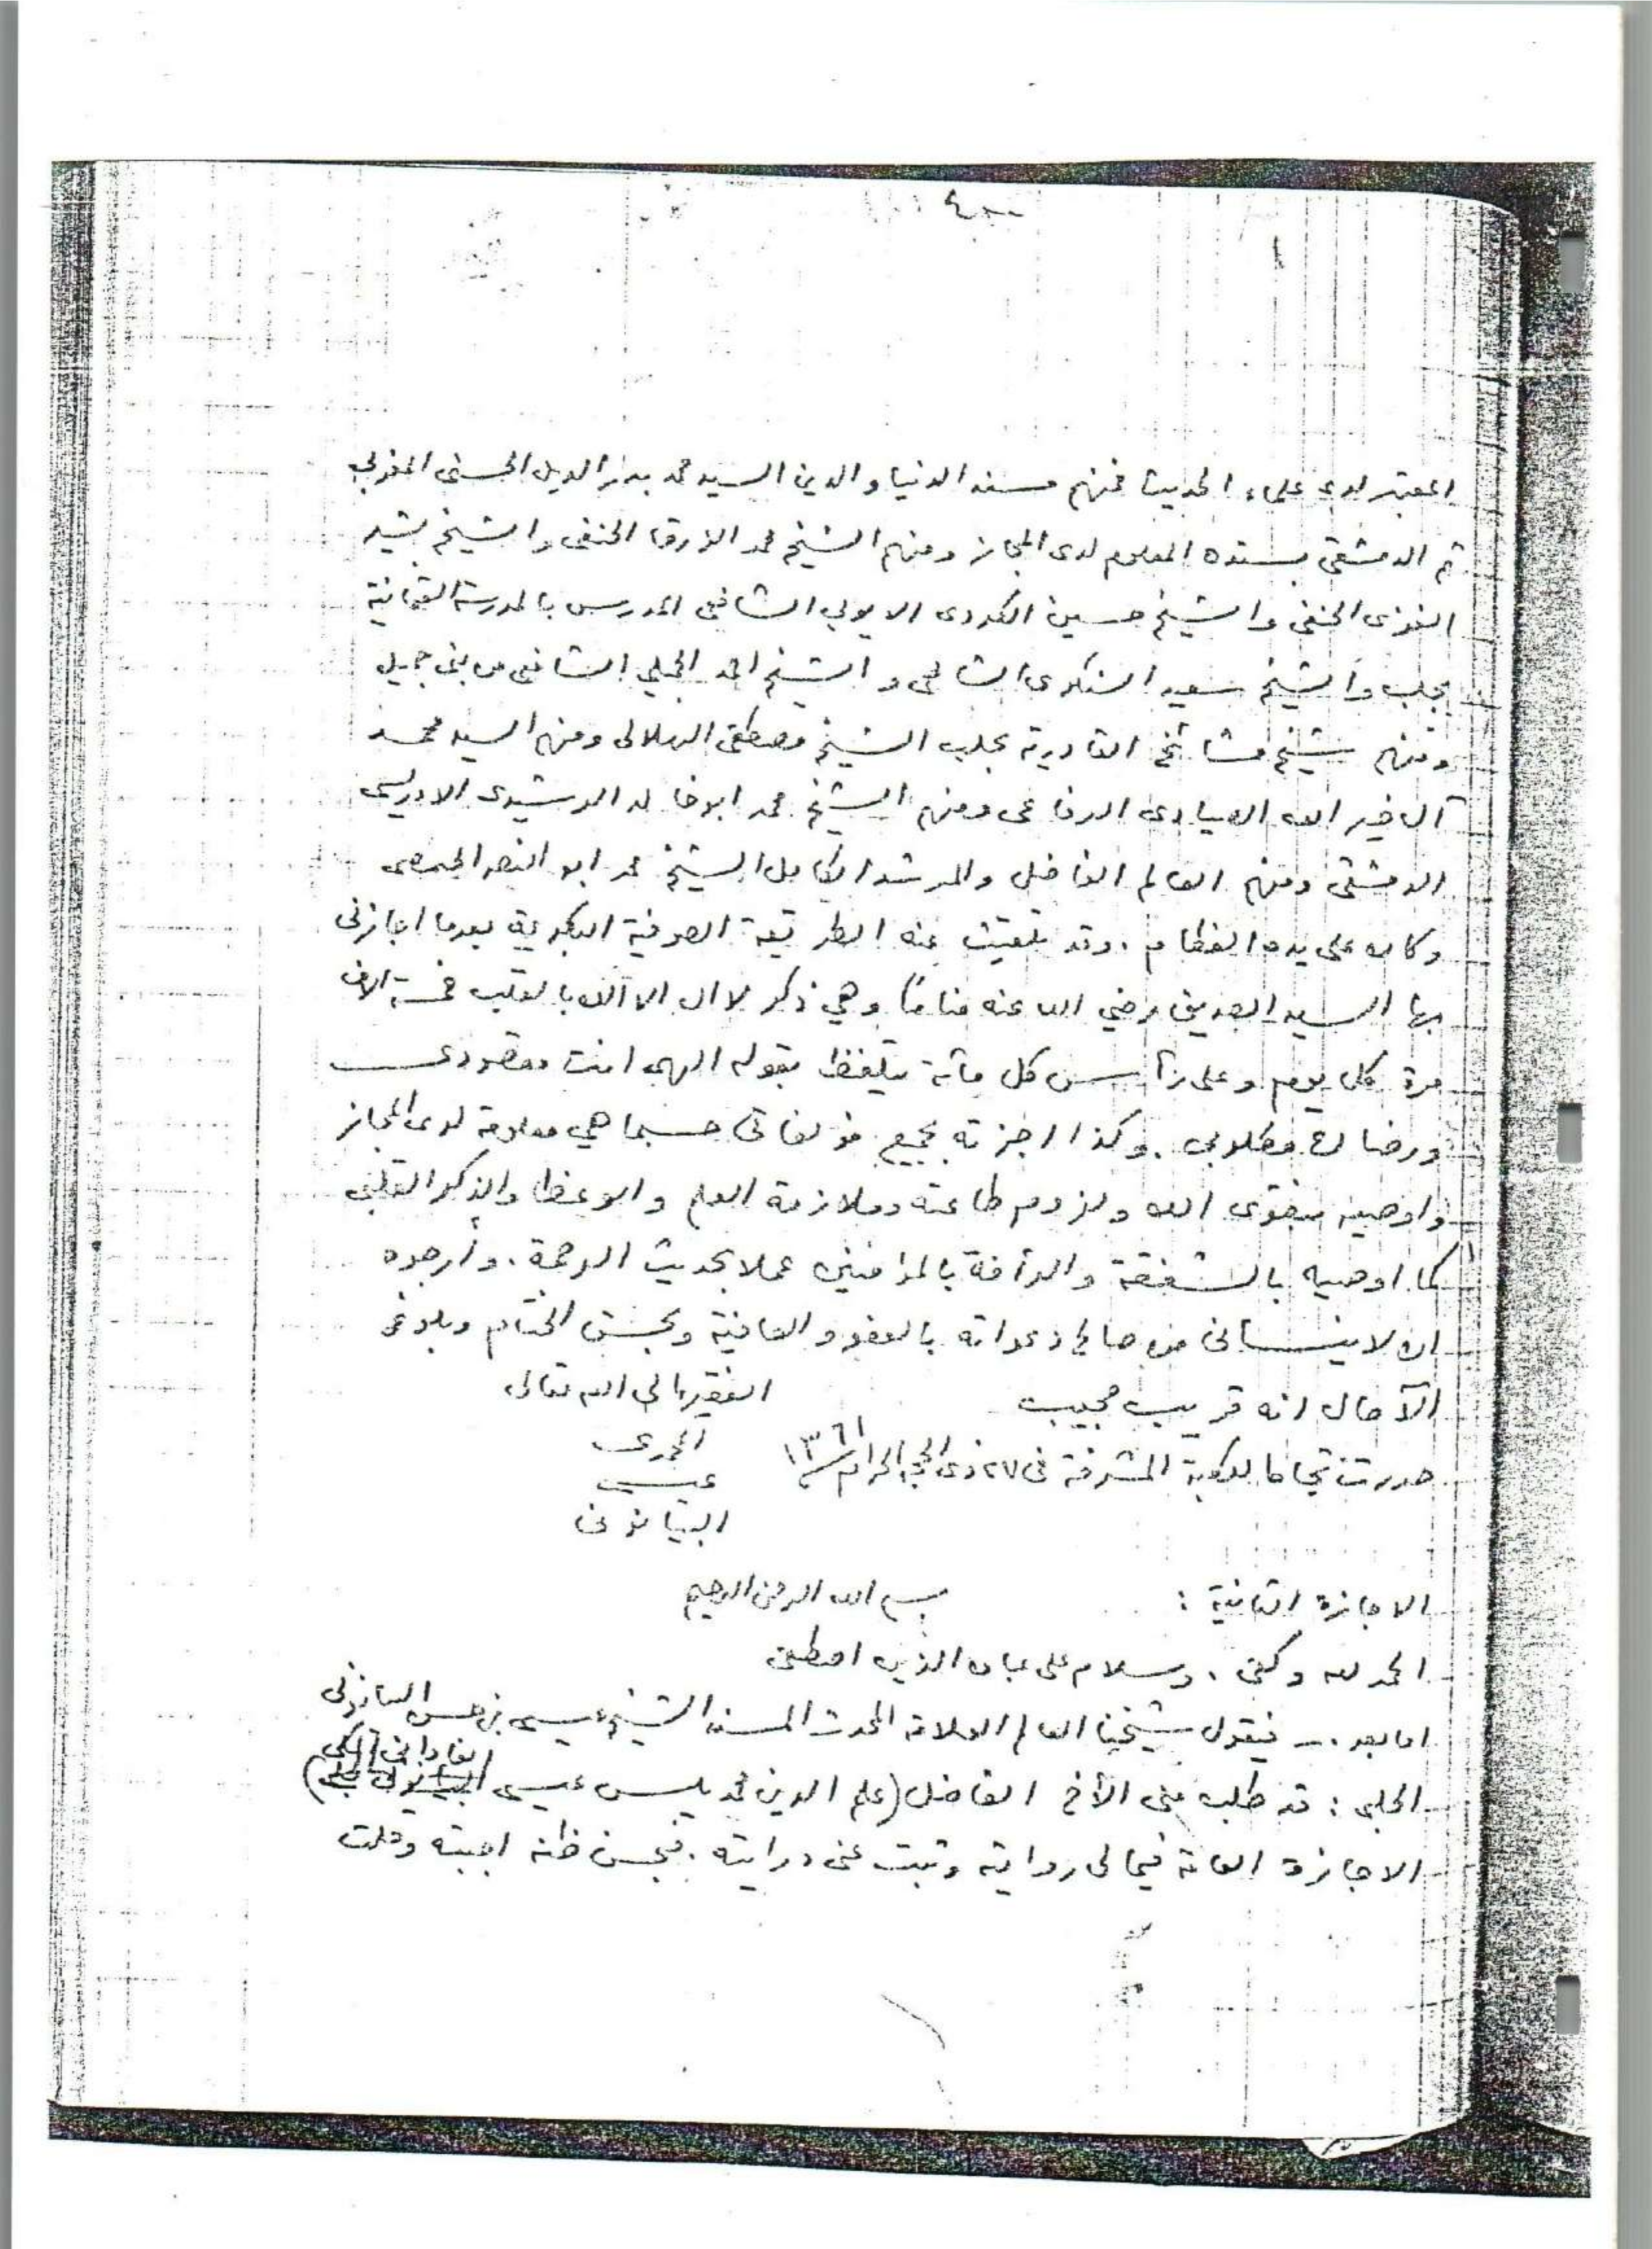 المعتبر لدى علماء الحديث فمنهم مسند الدنيا والدين السيد محمد بدر الدين الحسني المغربي
ثم الدمشقي بسنده المعلوم لدى المجاز ومنهم الشيخ محمد الزرقا الحنفي والشيخ بشير
الغزي الحنفي والشيخ حسين الكردي الايوبي الشافعي المدرس بالمدرسة العثمانية
بحلب والشيخ سعيد السنكري الشافعي والشيخ احمد الشافعي من بني جميل
ومنهم شيخ مشائخ القادرية بحلب الشيخ مصطفى الهلالي ومنهم السيد محمد
آل خير الله الصيادي الرفاعي ومنهم الشيخ محمد ابو خالد الرشيدي الادريسي
الدمشقي ومنهم العالم الفاضل والمرشد الكامل الشيخ محمد ابو النصر الحمصي
وكان على يده الفطام . وقد تلقيت عنه الطريقة الصوفية البكرية بعدما اجازني
بها السيد الصديق رضي الله عنه مناما وهي ذكر لا اله الا الله بالقلب خمسة الاف
مرة كل يوم وعلى رأس كل مائة يتلفظ بقوله الهي انت مقصودي
ورضاك مطلوبي . وكذا اجزته بجميع مؤلفاتي حسبما هي معلومة لدى المجاز
واوصيه بتقوى الله ولزوم طاعته وملازمة العلم والوعظ والذكر القلبي
كما اوصيه بالشفقة والرأفة بالمؤمنين عملا بحديث الرحمة . وأرجوه
ان لا ينساني من صالح دعواته بالعفو والعافية وبحسن الختام وبلوغ
الآمال انه قريب مجيب
الفقير الى الله تعالى
حررت تجاه الكعبة المشرفة في ٢٧ ذي الحجة الحرام ١٣٦١
عيسى
البيانوني
الاجازة الثانية :
بسم الله الرحمن الرحيم
الحمد لله وكفى . وسلام على عباده الذين اصطفى
اما بعد .. فيقول شيخنا العالم العلامة المحدث المسند الشيخ عيسى بن حسن البيانوني
الحلبي : قد طلب مني الأخ الفاضل (علم الدين محمد يس عيسى الفاداني المكي)
الاجازة العامة فيما لي روايته وثبت عني درايته . فبحسن ظنه اجبته وقلت